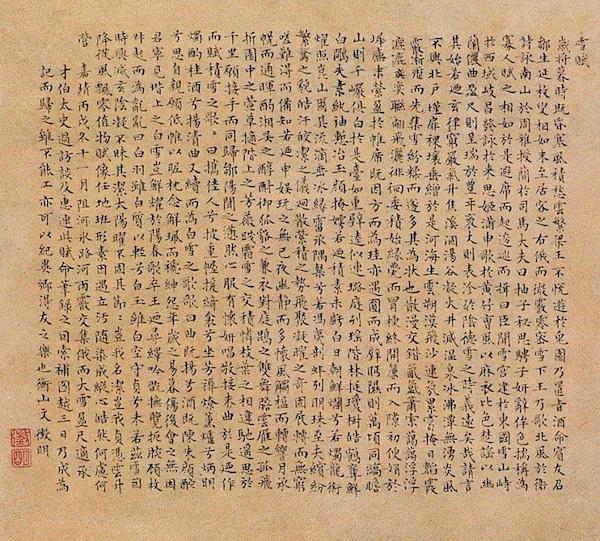 雪賦
歲將暮時既昏寒風積愁雲繁梁王不悅遊於兔園乃置旨酒命賓友召
鄒生延枚叟相如末至居客之右俄而微霰零密雪下王乃歌北風於衛
詩詠南山於周雅授簡於司馬大夫曰抽子秘思騁子妍辭侔色揣稱為
寡人賦之相如於是避席而起逡巡而揖曰臣聞雪宮建於東國雪山峙
於西域岐昌發詠於來思姬滿申歌於黃竹曹風以麻衣比色楚謠以幽
蘭儷曲盈尺則呈瑞於豐年袤丈則表沴於陰德雪之時義遠矣哉請言
其始若迺玄律窮嚴氣升焦溪涸湯谷凝火井滅溫泉冰沸潭無湧炎風
不興北戶墐扉裸壤垂繒於是河海生雲朔漠飛沙連氛累靄掩日韜霞
霰淅瀝而先集雪紛糅而遂多其為狀也散漫交錯氛氳蕭索藹藹浮浮
瀌瀌奕奕聯翩飛灑徘徊委積始緣甍而冒棟終開簾而入隙初便娟於
墀廡末縈盈於帷席既因方而為珪亦遇圓而成璧眄隰則萬頃同縞瞻
山則千巖俱白於是臺如重璧逵似連璐庭列瑤階林挺瓊樹皓鶴奪鮮
白鷴失素紈袖慙冶玉顏掩嫮若迺積素未虧白日朝鮮爛兮若燭龍銜
耀照崑山爾其流滴垂冰緣霤承隅粲兮若馮夷剖蚌列明珠至夫繽紛
繁騖之貌皓汗皦潔之儀迴散縈積之勢飛聚凝曜之奇固展轉而無窮
嗟難得而備知若迺申娛玩之無已夜幽靜而多懷風觸楹而轉響月承
幌而通暉酌湘吳之醇酎御狐貉之兼衣對庭鵾之雙舞瞻雲雁之孤飛
折園中之萱草摘階上之芳薇踐霜雪之交積憐枝葉之相違馳遙思於
千里願接手而同歸鄒陽聞之懣然心服有懷妍唱敬接末曲於是迺作
而賦積雪之歌歌曰攜佳人兮披重幄援綺衾兮坐芳褥燎薰爐兮炳明
燭酌桂酒兮揚清曲又續而為白雪之歌歌曰曲既揚兮酒既陳朱顏酡
兮思自親願低帷以昵枕念解珮而褫紳怨年歲之易暮傷後會之無因
君寧見階上之白雪豈鮮耀於陽春歌卒王迺尋繹吟翫撫覽扼腕顧枚
叔起而為亂亂曰白羽雖白質以輕兮白玉雖白空守貞兮未若茲雪因
時興滅玄陰凝不昧其潔太陽曜不固其節節豈我名潔豈我貞憑雲升
降從風飄零值物賦像任地班形素因遇立汙隨染成縱心皓然何慮何
營 嘉靖丙戌冬十一月阻河冰路河西霰交集俄而大雪盈尺適承
才伯太史過訪談及惠連此賦命筆錄之因索補圖越三日乃成為
記而歸之雖不能工亦可以紀異鄉得友之樂也衡山文徵明